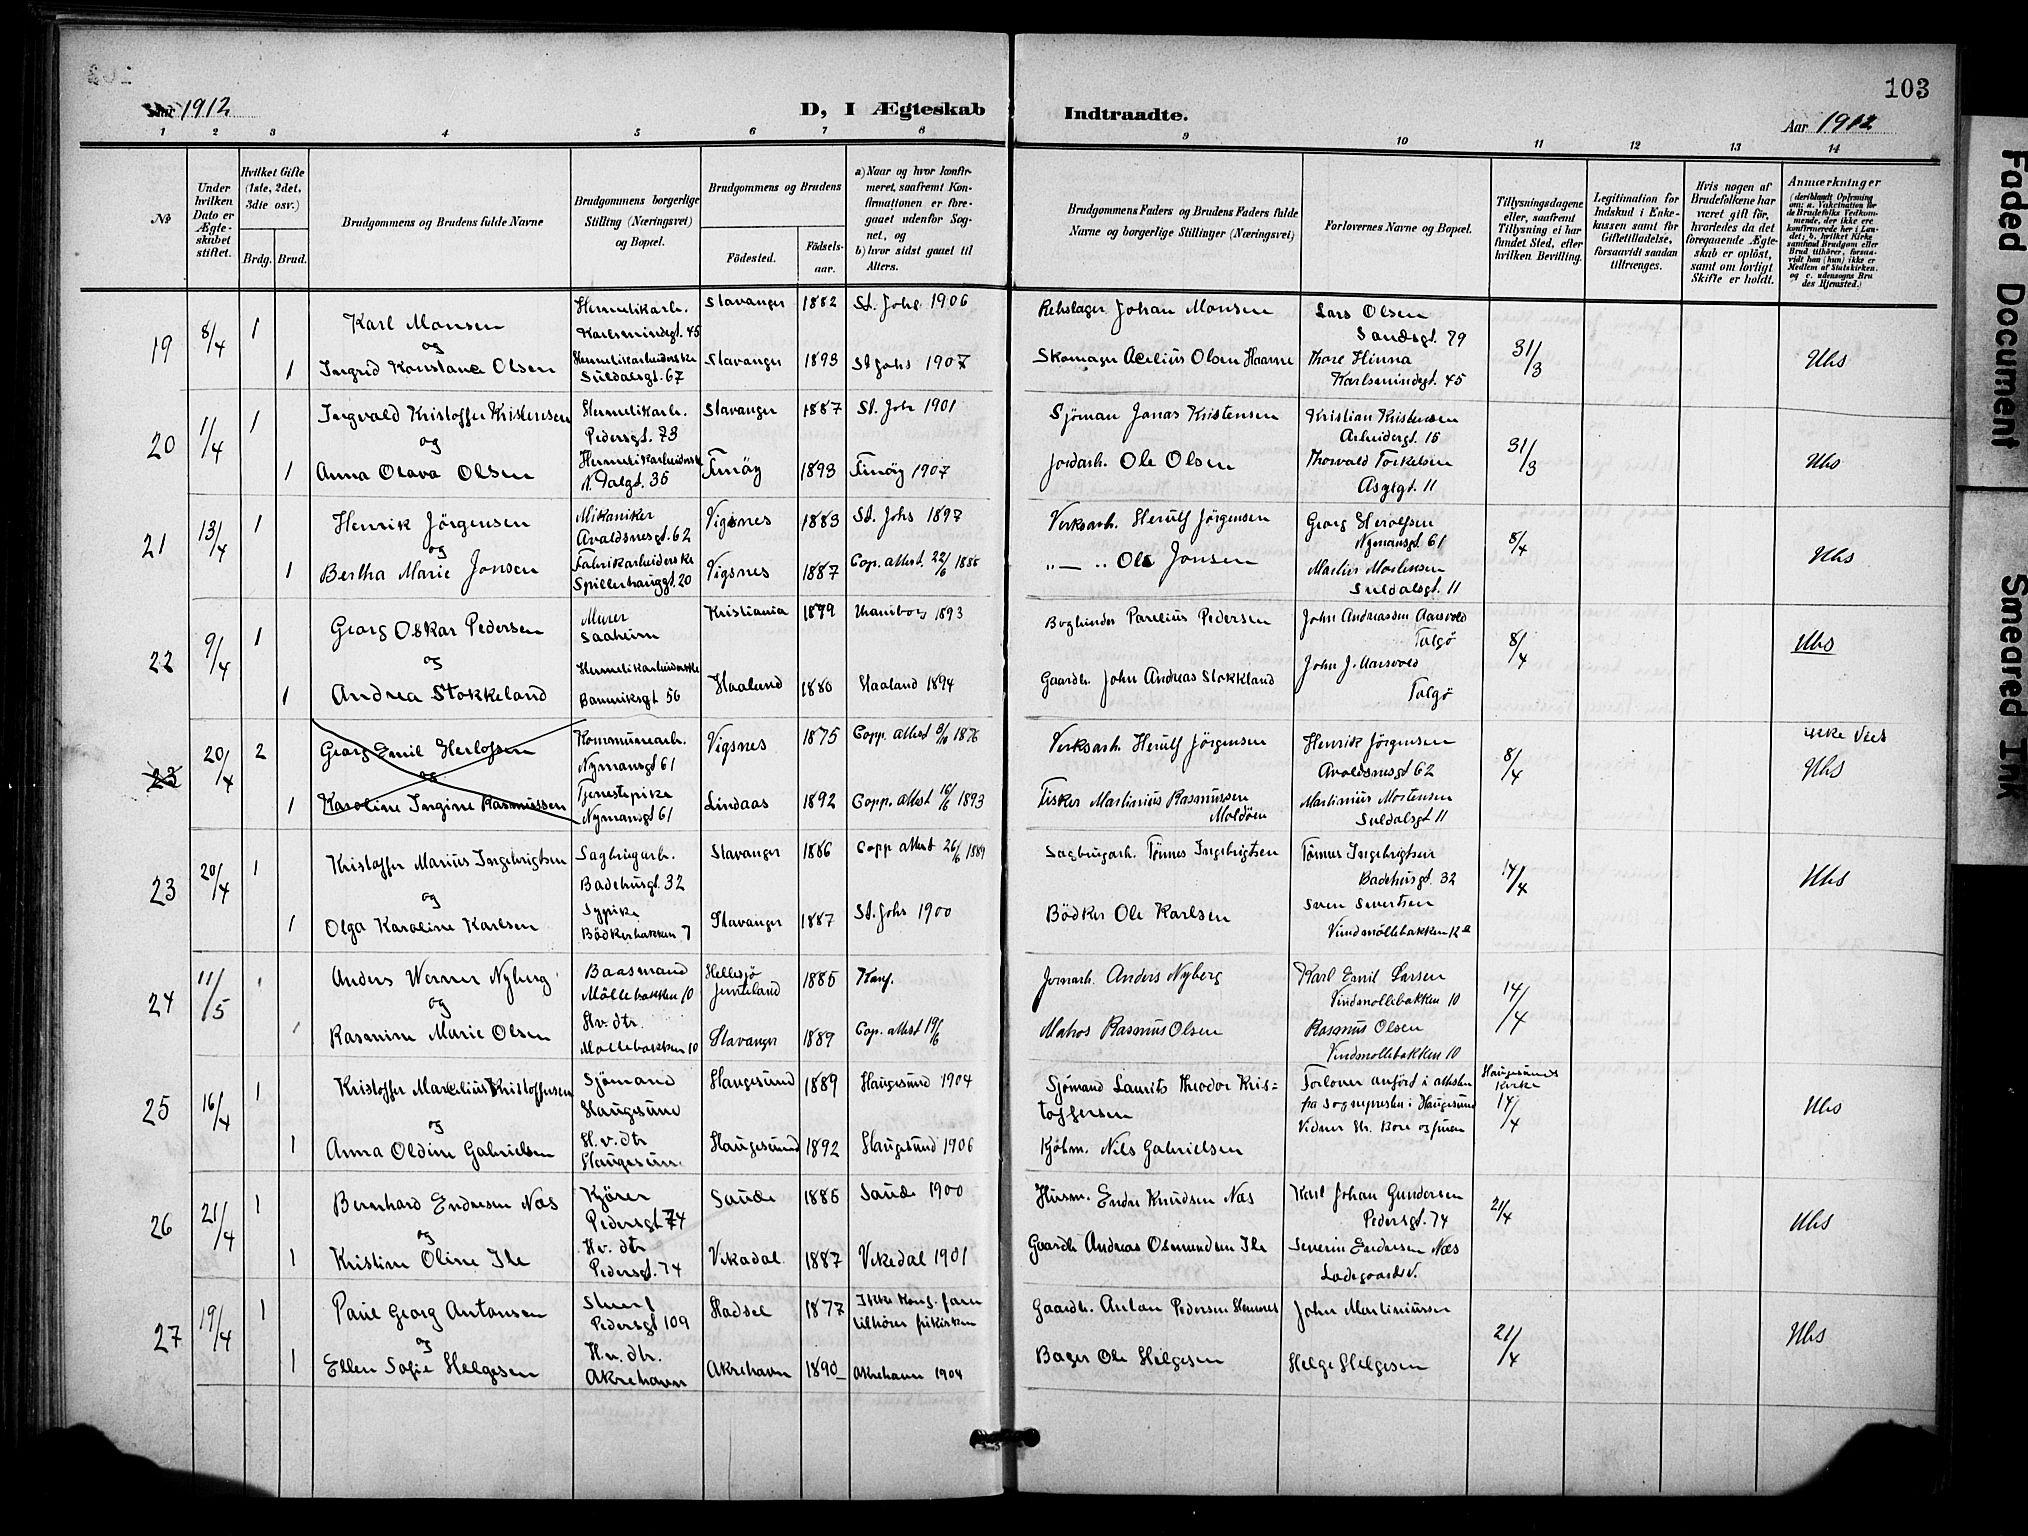 103
Aar 1912
D, I Ægteskab Indtraadte.
Aar 1912
1 2 3 4 5 6 7 8 9 10 11 12 13 14
No
Under hvilken Dato er Ægteskabet stiftet.
Hvilket Gifte (1ste, 2det, 3die osv.)
Brdg. Brud.
Brudgommens og Brudens fulde Navne
Brudgommens borgerlige Stilling (Næringsvei) og Bopæl.
Brudgommens og Brudens
Födested. Födsels-aar.
a) Naar og hvor konfirmeret, saafremt Konfirmationen er foregaaet udenfor Sognet, og
b) hvor sidst gaaet til Alters.
Brudgommens Faders og Brudens Faders fulde Navne og borgerlige Stillinger (Næringsvei)
Forlovernes Navne og Bopæl.
Tillysningsdagene eller, saafremt Tillysning ei har fundet Sted, efter hvilken Bevilling.
Legitimation for Indskud i Enkekassen samt for Giftetilladelse, forsaavidt saadan tiltrænges.
Hvis nogen af Brudefolkene har været gift för, hvorledes da det foregaaende Ægteskab er oplöst, samt om lovligt Skifte er holdt.
Anmærkninger
19 8/4 1 Karl Monsen Hermetikarb. Karlsmindegt. 45 Stavanger 1882 St. Johs 1906 Rebslager Johan Monsen Lars Olsen Sandsgt. 79 31/3 Uhs
og
1 Ingrid Konstance Olsen Hermetikarbeiderske Suldalsgt. 67 Stavanger 1893 St Johs 1907 Skomager Acelius Olsen Haarne Thore Hinna Karlsmindegt. 45
20 1/4 1 Ingvald Kristoffer Kristensen Hermetikarb. Pedersgt. 73 Stavanger 1887 St. Joh 1901 Sjöman Jonas Kristensen Kristian Kristensen Arbeidergt. 16 31/3 Uhs
og
1 Anna Olava Olsen Hermetikarbeiderske N. Dalgt. 35 Finöy 1893 Finöy 1907 Jordarb. Ole Olsen Thorvald Torkelsen Asylgt. 11
21 13/4 1 Henrik Jörgensen Mikaniker Avaldsnesgt. 62 Vigsnes 1883 St. Johs 1897 Verksarb. Herulf Jörgensen Georg Herolfsen Nymansgt. 61 8/4 Uhs
og
1 Bertha Marie Jonsen Fabrikarbeiderske Spilderhauggt. 20 Vigsnes 1887 Cop. attest. 22/6 1886 " — " Ole Jonsen Martin Mortensen Suldalsgt. 11
22 9/4 1 Georg Oskar Pedersen Murer Saaheim Kristiania 1879 1893 Bogbinder Parelius Pedersen John Andreassen Aarsvold Talgö 8/4 Uhs
og
1 Andrea Stokkeland Hermetikarbeiderske Banniksgt 56 Haaland 1880 Haaland 1894 Gaardb. John Andreas Stokkland John J. Aarsvold Talgö
23 20/4 2 Georg Emil Herlofsen Kommunearb. Nymansgt 61 Vigsnes 1875 Copp. attest 9/9 1876 Verksarb. Herulf Jörgensen Henrik Jörgensen Avaldsnesgt 62 8/4 ikke Viet Uhs
og
1 Karoline Ingine Rasmussen Tjenestepike Nymansgt 61 Lindaas 1892 Copp. attest 16/6 1893 Fisker Martinius Rasmussen Moldöen Martinius Mortensen Suldalsgt 11
23 20/4 1 Kristoffer Marius Ingebrigtsen Sagbrugarb. Badehusgt. 32 Stavanger 1886 Copp attest 26/6 1889 Sagbrugarb. Tönnes Ingebrigtsen Tönnes Ingebrigtsen Badehusgt. 32 14/4 Uhs
og
1 Olga Karoline Karlsen Sypike Bödkerbakken 7 Stavanger 1887 St. Johs 1900 Bödker Ole Karlsen Sven Sivertsen Vindmöllebakken 12a
24 11/5 1 Anders Werner Nyberg Baasmand Möllebakken 10 Hellesjö Jemteland 1885 Konf. Jernarb. Anders Nyberg Karl Emil Larsen Vindmöllebakken 10 14/4
og
1 Rasmine Marie Olsen Hv. dtr. Möllebakken 10 Stavanger 1889 Cop. attest 19/6 Matros Rasmus Olsen Rasmus Olsen Vindmöllebakken 10
25 16/4 1 Kristoffer Marcelius Kristoffersen Sjömand Haugesund Haugesund 1889 Haugesund 1904 Sjömand Laurits Theodor Kris=toffersen Forlover anfört i attesten fra sognepresten i Haugesund Haugesunds Kirke 14/4 Uhs
og
1 Anna Oldine Gabrielsen H.v. dtr Haugesun. Haugesund 1892 Haugesund 1906 Kjöbm. Nils Gabrielsen
26 21/4 1 Bernhard Endresen Næs Kjörer Pedersgt. 74 Saude 1886 Saude 1900 Husm. Endre Knudsen Næs Karl Johan Gundersen Pedersgt. 74 21/4 Uhs
og
1 Kristine Oline Ile Hv. dtr Pedersgt. 74 Vikadal 1887 Vikedal 1901 Gaardb Andreas Osmundsen Ile Severin Endresen Næs Ladegaardsv.
27 19/4 1 Paul Georg Antonsen Pedersgt 109 Hadsel 1877 Ikke konf. tilhörer frikirken Gaardb. Anton Pedersen John Martiniussen 21/4 Uhs
og
1 Ellen Sofie Helgesen H.v. dtr. Akrehavn Akrehavn 1890 Akrehavn 1904 Bager Ole Helgesen Helge Helgesen
Faded Document
Smeared Ink